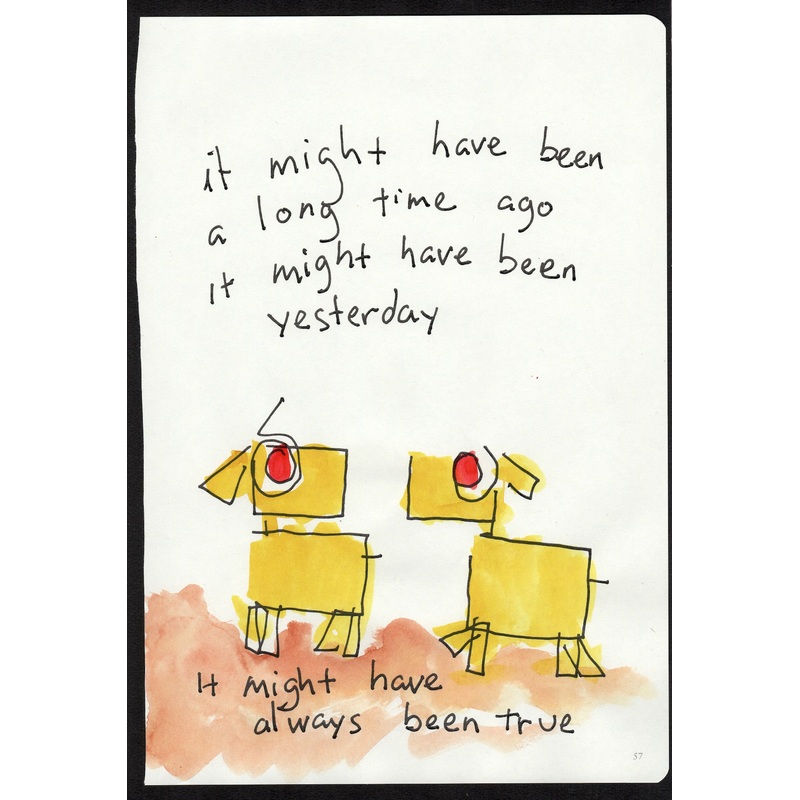 it might have been
a long time ago
it might have been
yesterday
It might have
always been true
57